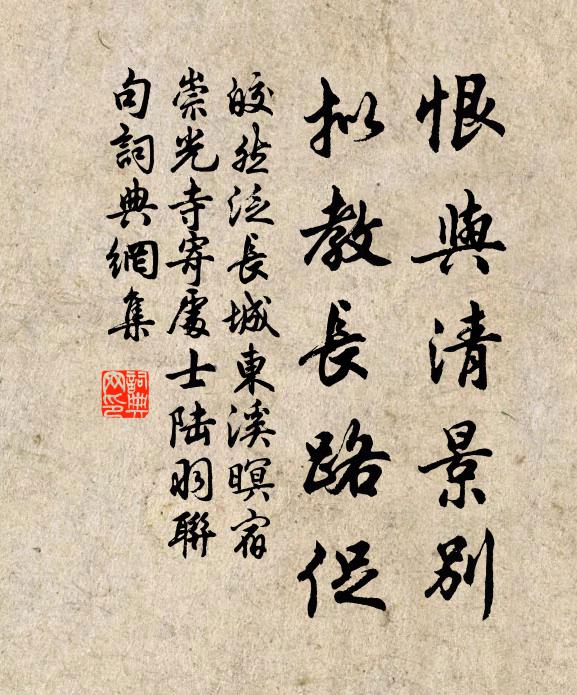 恨與清景別
拟教長路促
皎然泛長城東溪暝宿
崇光寺寄處士陆羽聯
句詞典網集
詞典
网印